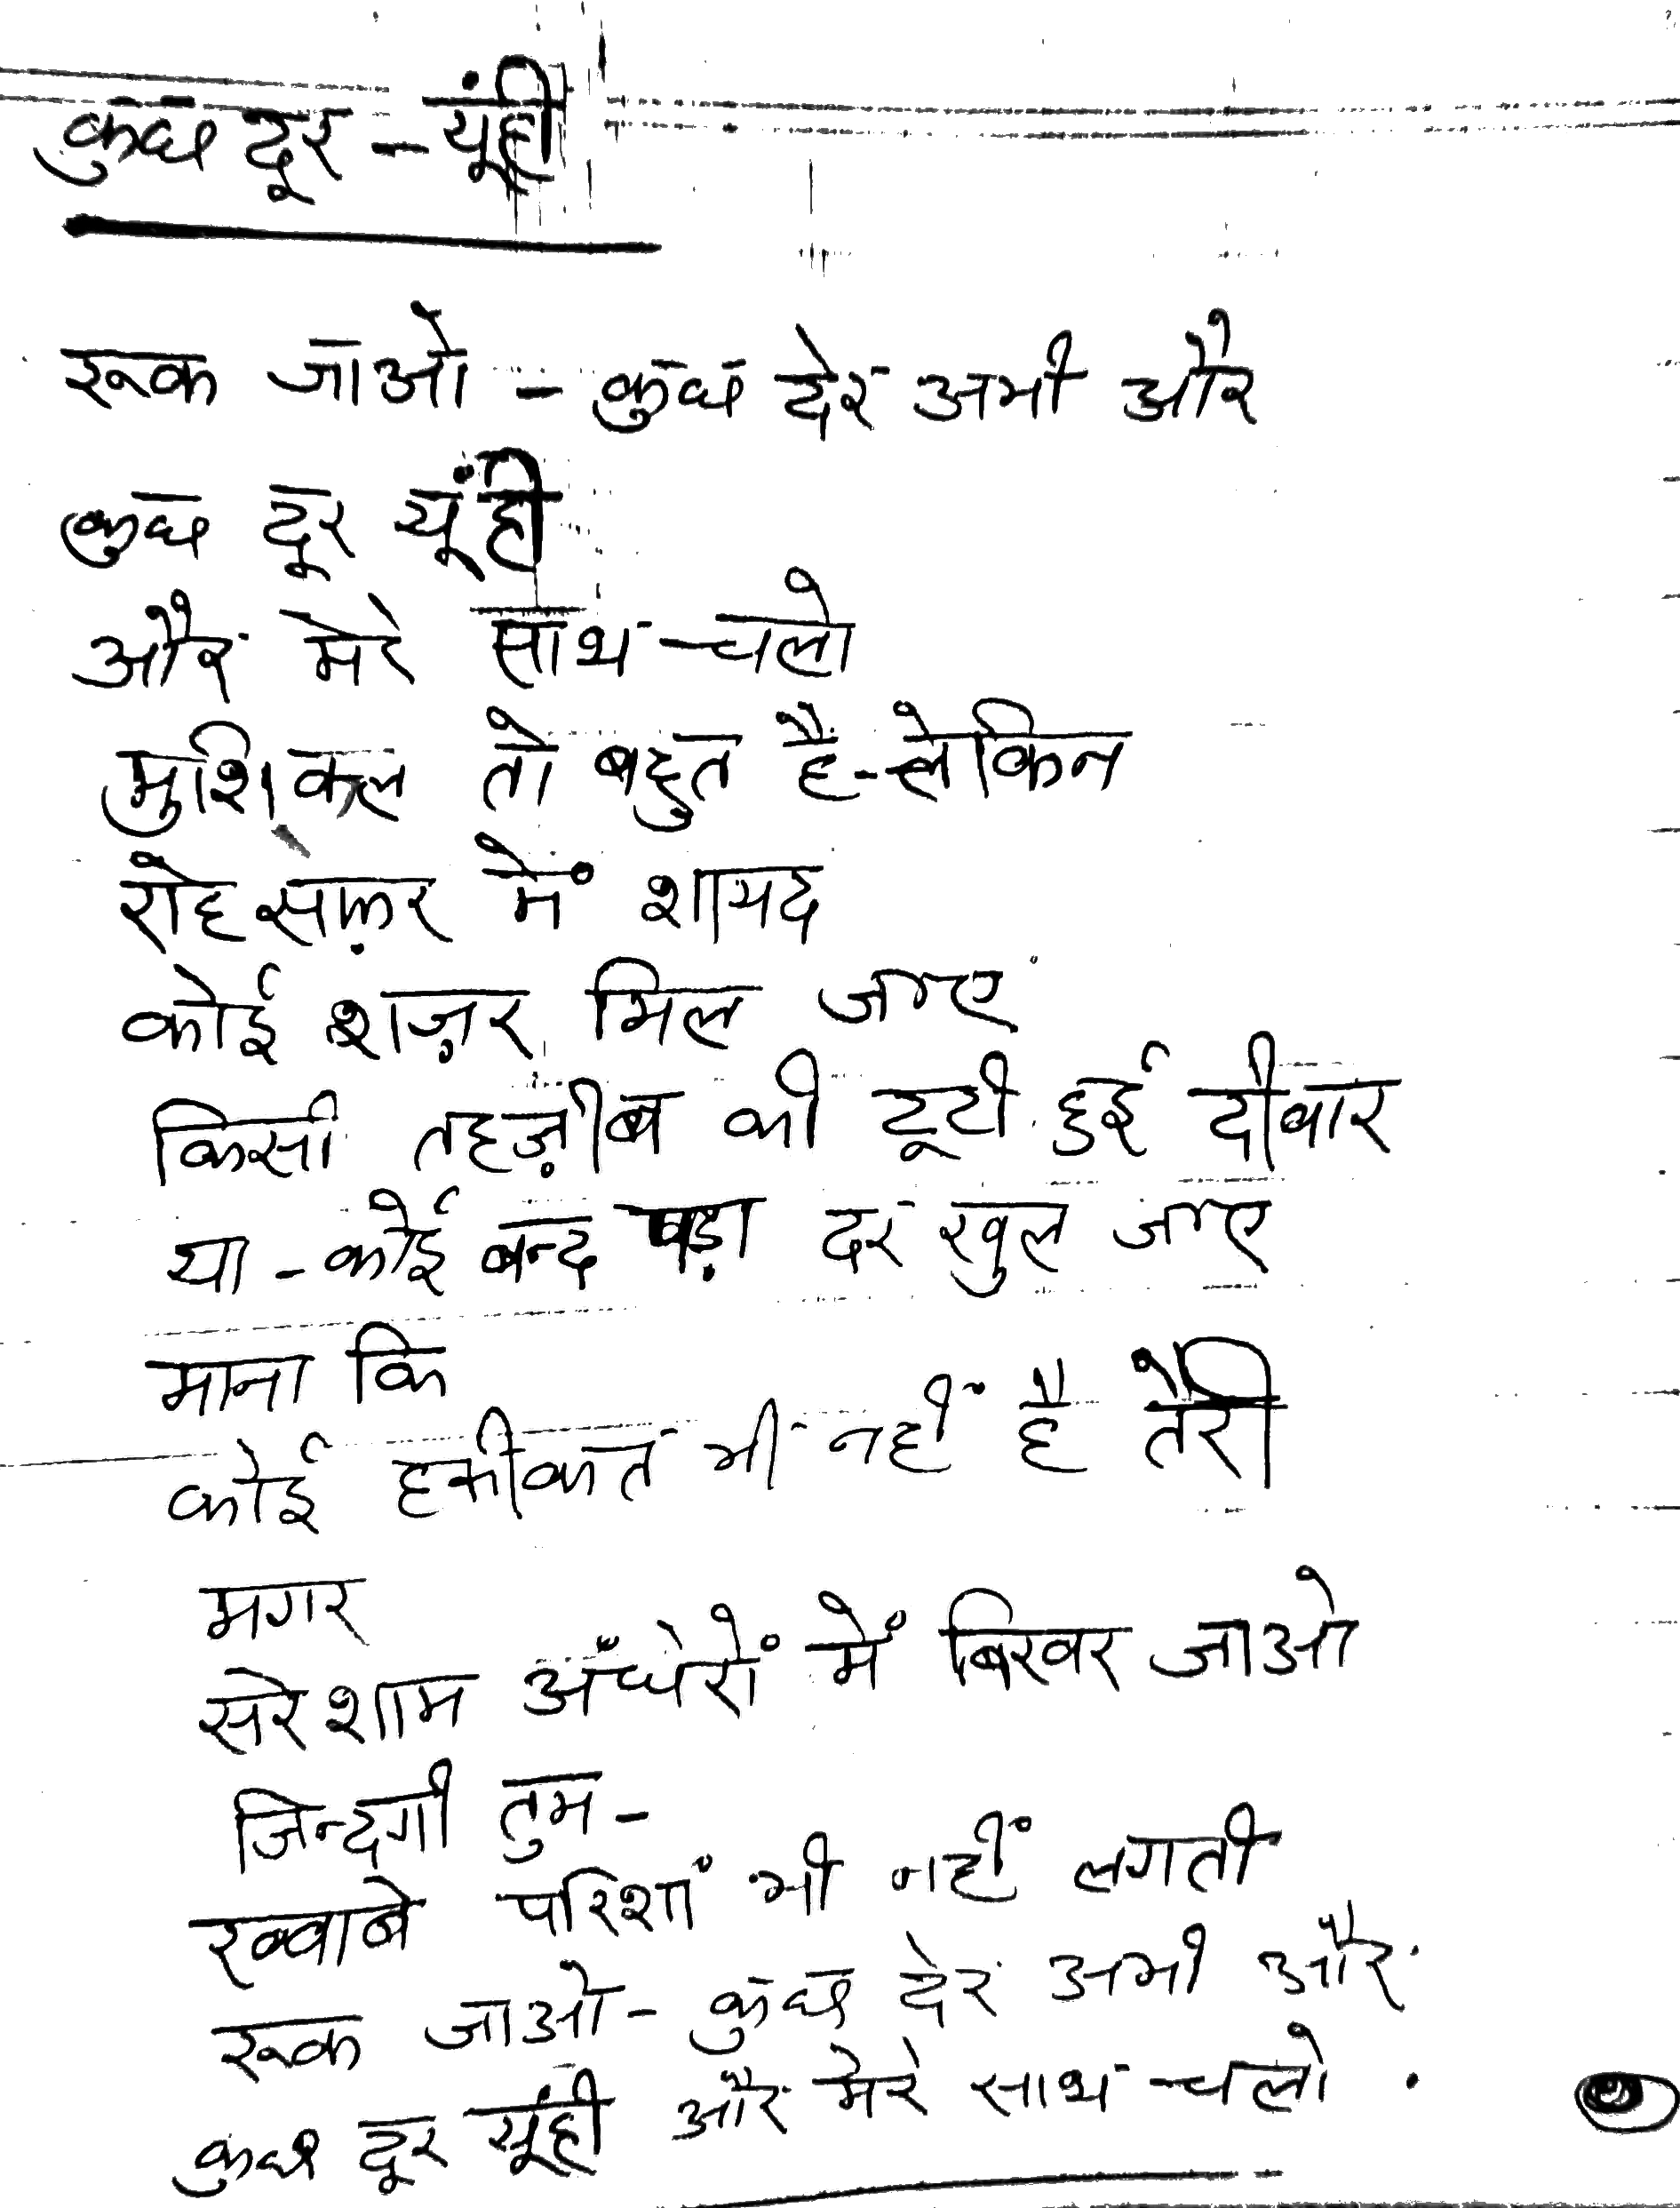 कुछ दूर - यूंही
रूक जाओ - कुछ देर अभी और
कुछ दूर यूंही
और मेरे साथ चलो
मुशिकल तो बहुत है - लेकिन
रोह सफ़र में शायद
कोई शज़र मिल जाए
किसी तहज़ीब की टूटी हुई दीवार
या - कोई बन्द पड़ा दर खुल जाए
माना कि
कोई हकीकत भी नहीं है तेरी
मगर
सरे शाम अँधेरों में बिखर जाओ
जिन्दगी तुम -
ख्वाबे परिशां भी नहीं लगती
रूक जाओ - कुछ देर अभी और
कुछ दूर यूंही और मेरे साथ चलो .